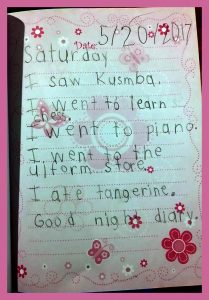 Date: 5/20/2017
Saturday
I saw Kusmba.
I went to learn
chess.
I went to piano.
I went to the
uiform store.
I ate tangerine.
Good night diary.